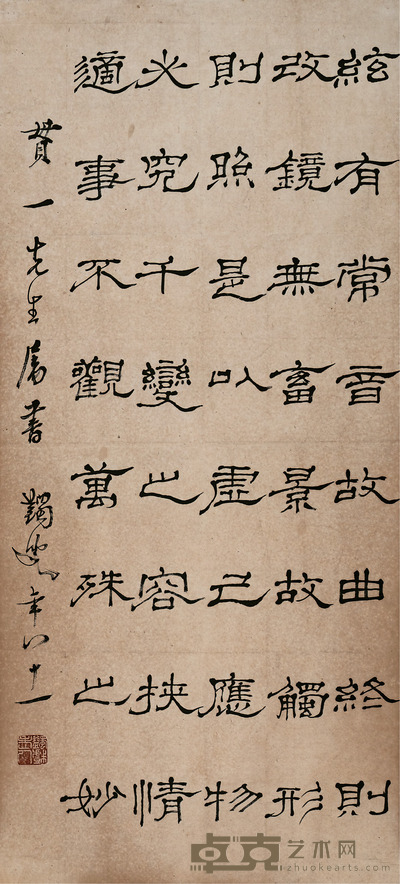 絃有常音故曲終則
改鏡無畜景故觸形
則照是以虛己應物
必究千變之容挾情
適事不觀萬殊之妙
貫一先生屬書 蠲叟年八十一
卓克艺术网
zhuokearts.com